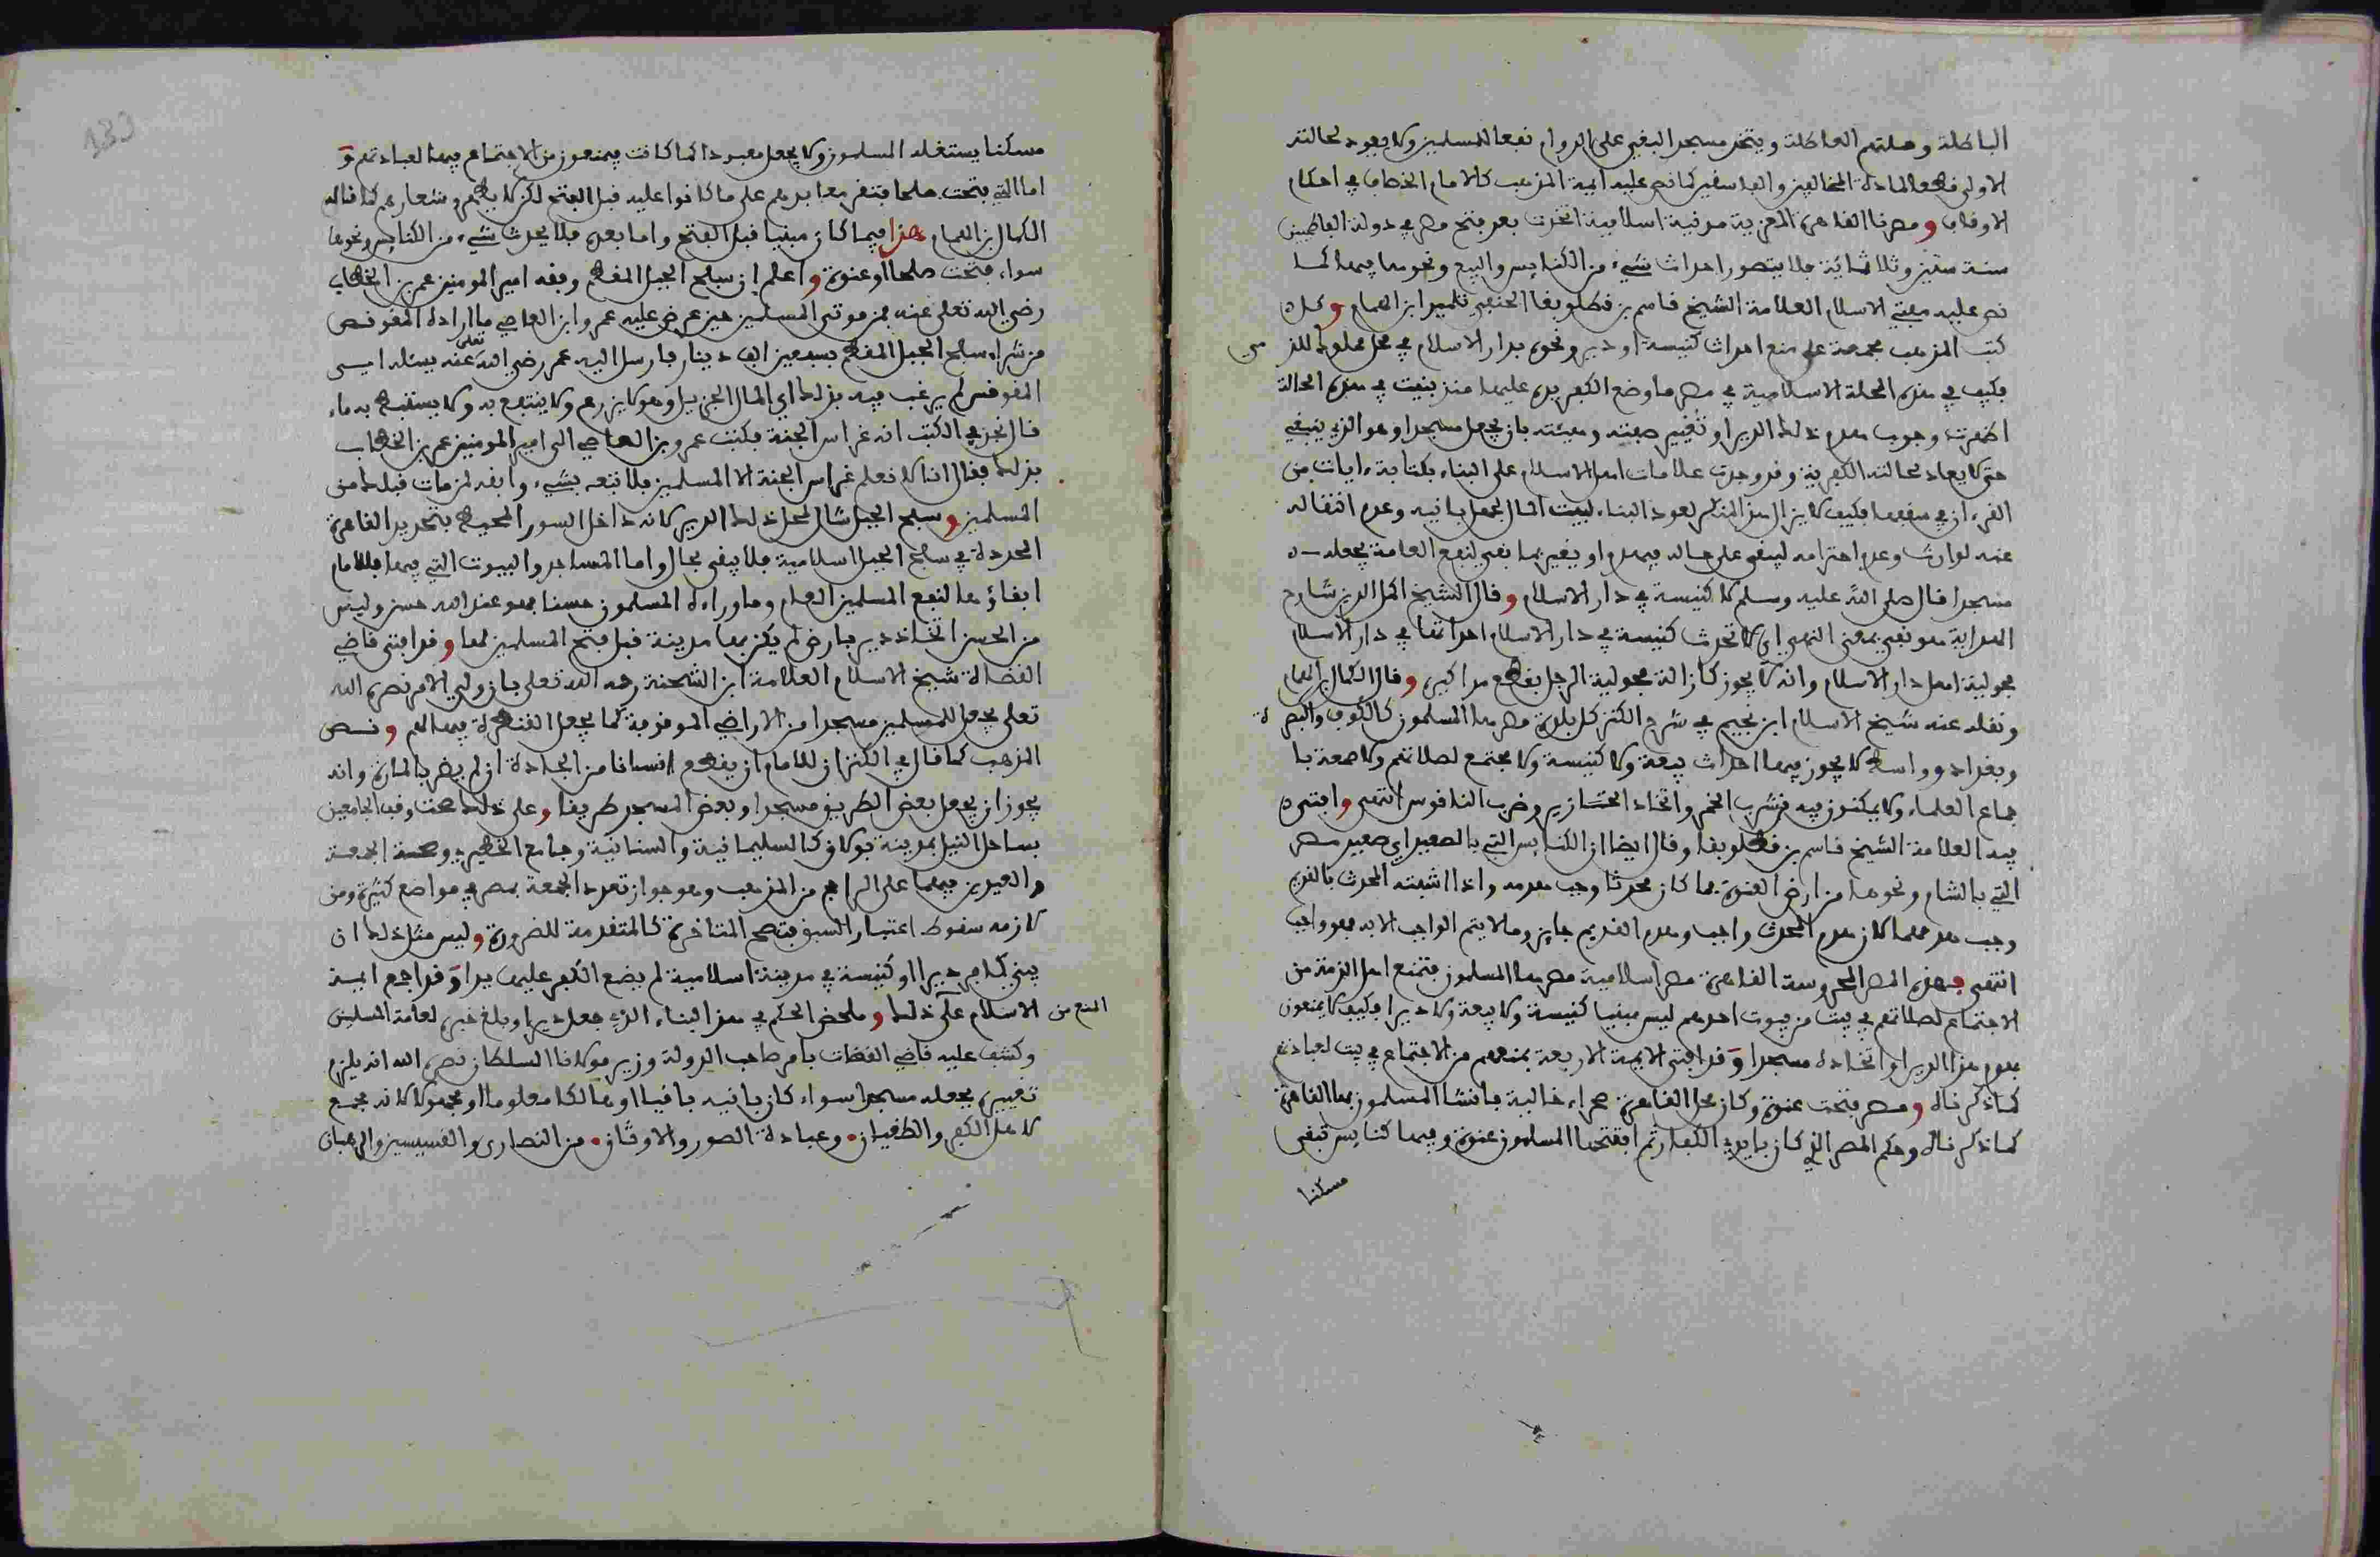 الباطلة وملتهم العاطلة ويتخذ مسجدا ليبقى على الدوام نفعا للمسلمين ولا يعود لحالته
الاولى قطعا لمادة المخالفين والفاسقين كما نص عليه ايمة المذهب كالامام الخصاف في احكام
الاوقاف ومصرنا القاهرة المعزية مدينة اسلامية اتخذت بعد فتح مصر في دولة الفاطميين
سنة ستين وثلاثماية فلا يتصور احداث شيء من الكنايس والبيع ونحوهما فيها كما
نص عليه مفتي الاسلام العلامة الشيخ قاسم بن قطلوبغا الحنفي تلميذ ابن الهمام وكل
كتب المذهب مجمعة على منع احداث كنيسة او دير ونحوه بدار الاسلام في محل مملوك للذمي
فكيف في هذه المحلة الاسلامية في مصر ما وضع الكفر يده عليها منذ بنيت في هذه الحالة
اظهرت وجوب هدم ذلك الدير او تغيير صفته وهيئته بان يجعل مسجدا وهو الذي ينبغي
حتى لا يعاد لحالته الكفرية وقد وجدت علامات اهل الاسلام على البناء بكتابة ءايات من
القرءان في سقفها فكيف لا يزال هذا المنكر لعود البناء لبيت المال لجهل بانيه وعدم انتقاله
عنه لوارث وعدم احترامه ليبقى على حاله فيهدم او يغير بما بقي لنفع العامة بجعله
مسجدا قال صلى الله عليه وسلم لا كنيسة في دار الاسلام وقال الشيخ اكمل الدين شارح
الهداية هو نفي بمعنى النهي اي لا تحدث كنيسة في دار الاسلام احداثها في دار الاسلام
فحولية اهل دار الاسلام وانه لا يجوز كازالة فحولية الرجل بقطع مذاكيره وقال الكمال بن الهمام
ونقله عنه شيخ الاسلام ابن نجيم في شرح الكنز كل بلدة مصرها المسلمون كالكوفة والبصرة
وبغداد وواسط لا يجوز فيها احداث بيعة ولا كنيسة ولا مجتمع لصلاتهم ولا صومعة با
جماع العلماء ولا يمكنون فيه من شرب الخمر واتخاذ الخنازير وضرب الناقوس انتهى وافتى
فيه العلامة الشيخ قاسم بن قطلوبغا وقال ايضا ان الكنايس التي بالصعيد اي صعيد مصر
التي بالشام ونحوها من ارض العنوة فما كان محدثا وجب هدمه واذا اشتبه المحدث بالقديم
وجب هدمهما لان هدم المحدث واجب وهدم القديم جايز وما لا يتم الواجب الا به فهو واجب
انتهى وهذه المصر المحروسة القاهرة مصر اسلامية مصرها المسلمون فتمنع اهل الذمة من
الاجتماع لصلاتهم في بيت من بيوت احدهم ليس مبنيا كنيسة ولا بيعة ولا ديرا فكيف لا يمنعون
بهدم هذا الدير او اتخاذه مسجدا وقد افتى الايمة الاربعة بمنعهم من الاجتماع في بيت لعبادتهم
كما ذكرناه ومصر فتحت عنوة وكان محل القاهرة صحراء خالية فانشا المسلمون بها القاهرة
كما ذكرناه وحكم المصر الذي كان بايدي الكفار ثم افتتحها المسلمون عنوة وفيها كنايس تبقى
مسكنا
مسكنا يستغله المسلمون ولا يجعل معبدا كما كانت فيمنعون من الاجتماع فيها لعبادتهم و
اما التي فتحت صلحا فتقر معابدهم على ما كانوا عليه قبل الفتح لكن لا يظهروا شعارهم كما قاله
الكمال بن الهمام هذا فيما كان مبنيا قبل الفتح واما بعده فلا يحدث شيء من الكنايس ونحوها
سواء فتحت صلحا او عنوة واعلم ان سفح الجبل المقطم وقفه امير المومنين عمر بن الخطاب
رضي الله تعلى عنه لدفن موتى المسلمين حين عرض عليه عمرو ابن العاصي ما اراده المقوقس
من شراء سفح الجبل المقطم بسبعين الف دينار فارسل اليه عمر رضي الله تعلى عنه يسئله ايش
المقوقس لم يرغب فيه بذلك اي المال الجزيل وهو لا يزرع ولا ينتفع به ولا يستنبط به ماء
قال نجد في الكتب انه غراس الجنة فكتب عمرو بن العاصي الى امير المومنين عمر بن الخطاب
بذلك فقال انا لا نعلم غراس الجنة الا المسلمين فلا تبعه بشيء وابقه لمن مات قبلك من
المسلمين وسفح الجبل شامل لمحل ذلك الدير لانه داخل السور المحيط بتحديد القاهرة
المحددة في سفح الجبل اسلامية فلا يبقى بحال واما المساجد والبيوت التي فيها فللامام
ابقاؤها لنفع المسلمين العام وما وراءه المسلمون حسنا فهو عند الله حسن وليس
من الحسن اتخاذ دير بارض لم يكن بها مدينة قبل فتح المسلمين لها وقد افتى قاضي
القضاة شيخ الاسلام العلامة ابن الشحنة رحمه الله تعلى بان ولي الامر نصره الله
تعلى يجعل للمسلمين مسجدا من الاراضي الموقوفة كما يجعل القنطرة فيها لهم ونص
المذهب كما قال في الكنز ان للامام ان يقطع انسانا من الجادة ان لم يضر بالمارة وانه
يجوز ان يجعل بعض الطريق مسجدا وبعض المسجد طريقا وعلى ذلك صحت وقف الجامعين
بساحل النيل بمدينة بولاق كالسليمانية والسنانية وجامع الخطيري وصحة الجمعة
والعيدين فيهما على الراجح من المذهب وهو جواز تعدد الجمعة بمصر في مواضع كثيرة ومن
لازمه سقوط اعتبار السبق فتصح المتاخرة كالمتقدمة للضرورة وليس مثل ذلك ان
يبني كافر ديرا او كنيسة في مدينة اسلامية لم يضع الكفر عليها يدا وقد اجمع ايمة
الاسلام على المنع من ذلك وملخص الحكم في هذا البناء الذي جعل ديرا وبلغ خبره لعامة المسلمين
وكشف عليه قاضي القضات بامر صاحب الدولة وزير مولانا السلطان نصره الله انه يلزم
تغييره بجعله مسجدا سواء كان بانيه باقيا او هالكا معلوما او مجهولا لانه مجمع
لاهل الكفر والطغيان وعبادة الصور والاوثان من النصارى والقسيسين والرهبان